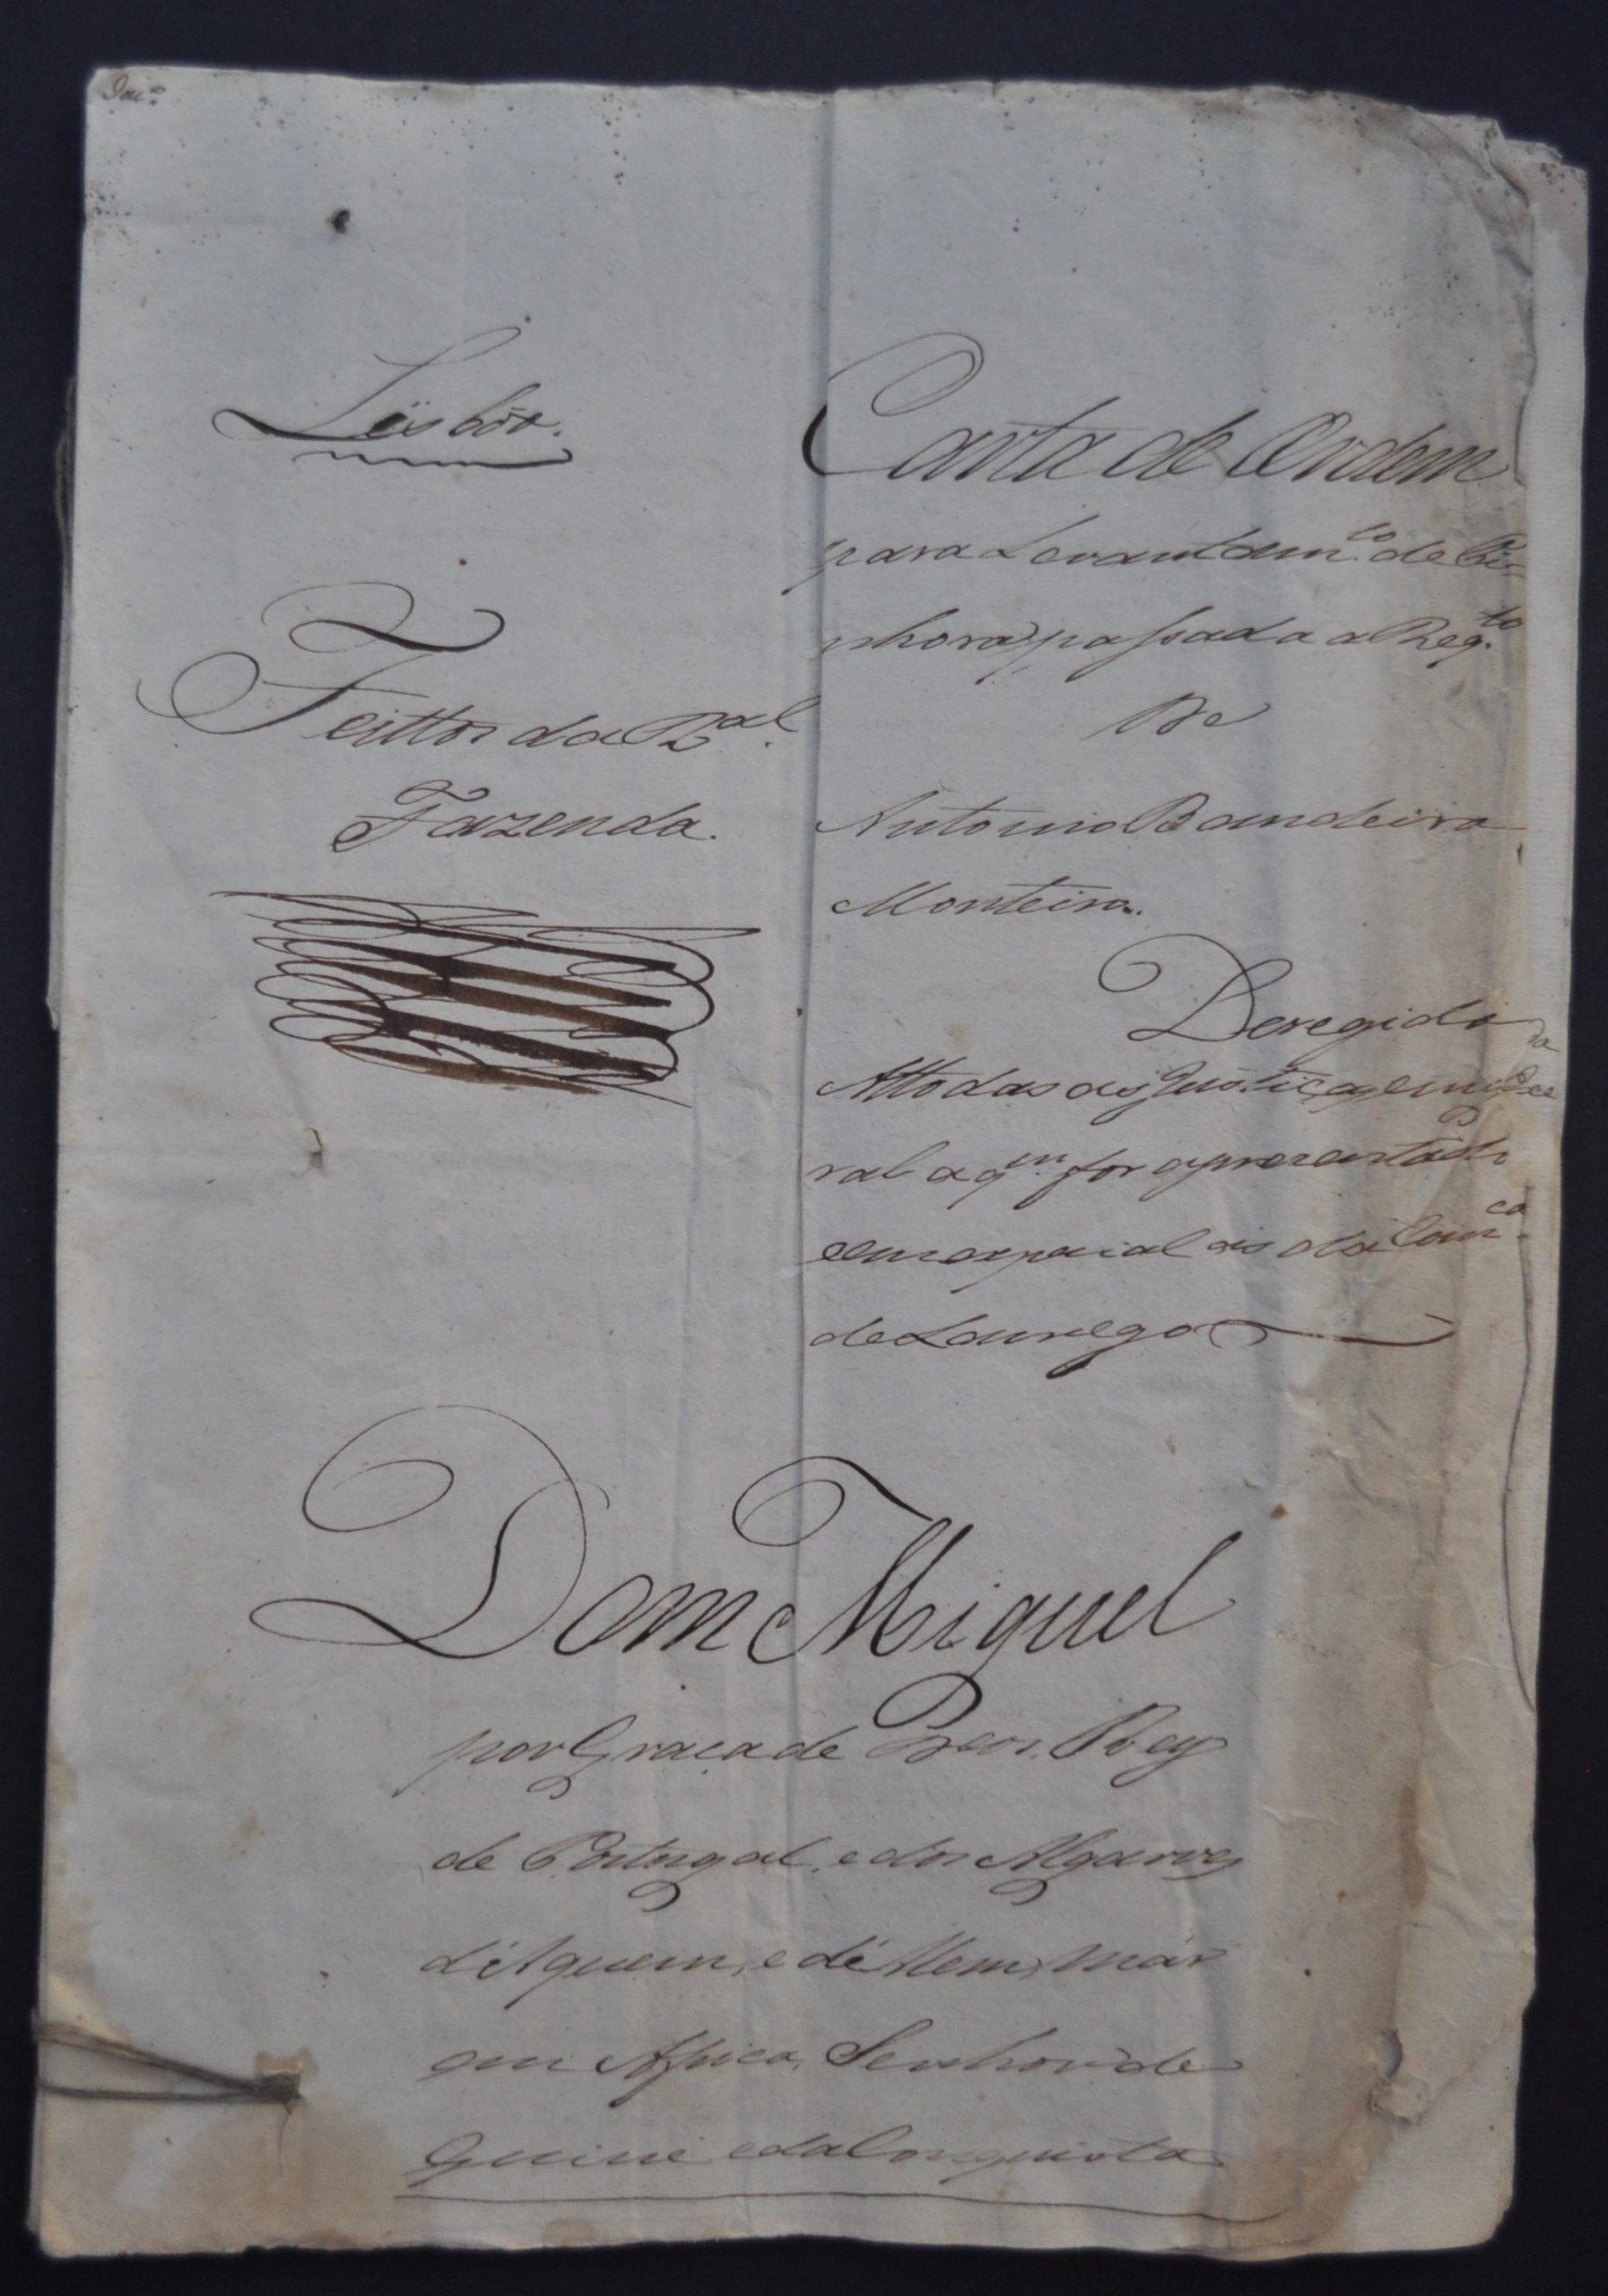 Lisbôa.
Feittos da R.al
Fazenda.
Carta de Ordem
para Levantam.to de Pi-
nhora passada a Reg.to
De
Antonio Bandeira
Monteiro.
Deregida
Attodas as Justiças em Ge
ral a q.m for aprezentada
e em especial as da Com.ca
de Lamego
Dom Miguel
por Graça de Deos Rey
de Portugal, e dos Algarves
d'Aquem, e d'Alem, mar
em Africa, Senhor de
Guiné e da Conquista